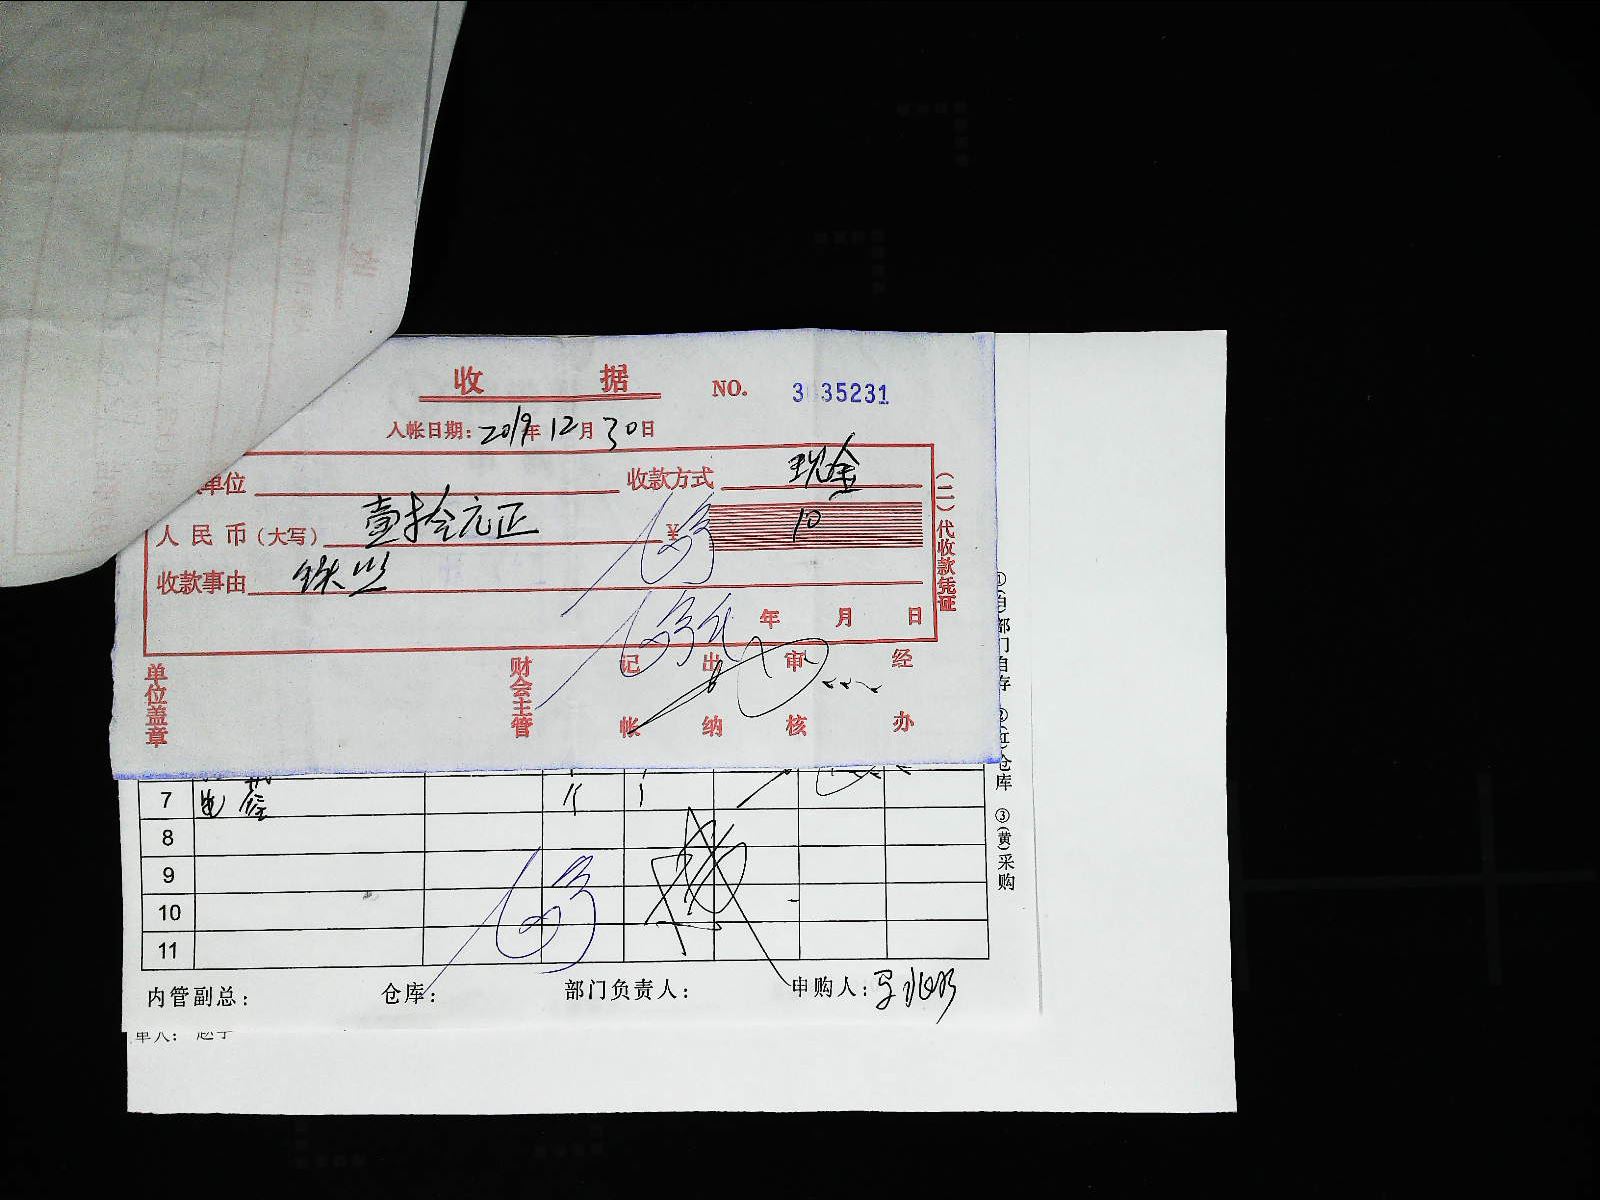 收 据 NO. 3 35231
入帐日期：2019年12月30日
单位 收款方式 现金
人民币（大写） 壹拾元正 ¥ 10
收款事由 铁丝
年 月 日
（二）代收款凭证
单位盖章 财会主管 记帐 出纳 审核 经办
①(白)部门自存 ②(红)仓库 ③(黄)采购
7
8
9
10
11
内管副总： 仓库： 部门负责人： 申购人：